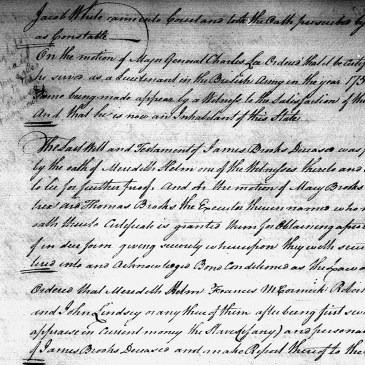 Jacob White came into Court and took the Oath prescribed by
as Constable
On the motion of Major General Charles Lee Ordered that it be certif
he serv'd as a Lieutenant in the British Army in the year 175
same being made appear by a Witness to the Satisfaction of the
And that he is now an Inhabitant of this State
The Last Will and Testament of James Brooks Deceased was p
by the oath of Meredith Helm one of the Witnesses thereto and
to lie for further proof. And on the motion of Mary Brooks
trex and Thomas Brooks the Executor therein named who
oath thereto Certificate is granted them for Obtaining a pro
f in due form giving security whereupon they with secu
tered into and Acknowledged Bond Conditioned as the Law
Ordered that Meredith Helm Francis McCormick Robert
and John Lindsey or any three of them after being first sw
appraise in current money the Slaves (if any) and persona
of James Brooks Deceased and make Report thereof to the